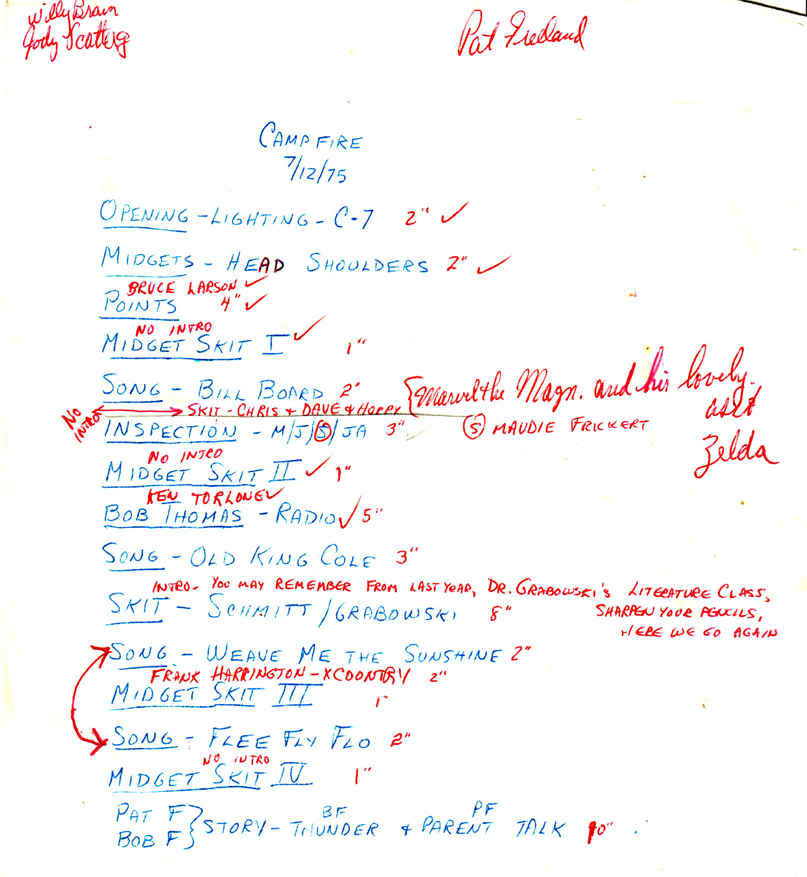 Willy Brain
Jody Scatterg
Pat Freeland
CAMPFIRE
7/12/75
OPENING - LIGHTING - C-7 2" ✓
MIDGETS - HEAD SHOULDERS 2" ✓
BRUCE LARSON ✓
POINTS 4" ✓
NO INTRO
MIDGET SKIT I ✓ 1"
SONG - BILL BOARD 2" { Marvel the Magn. and his lovely
asst
Zelda
NO INTRO SKIT - CHRIS & DAVE & HOPPY
INSPECTION - M/J/S/JA 3" ✓ (S) MAUDIE FRICKERT
NO INTRO
MIDGET SKIT II ✓ 1"
KEN TORLONE ✓
BOB THOMAS - RADIO ✓ 5"
SONG - OLD KING COLE 3"
INTRO - YOU MAY REMEMBER FROM LAST YEAR, DR. GRABOWSKI'S LITERATURE CLASS,
SHARPEN YOUR PENCILS,
HERE WE GO AGAIN
SKIT - SCHMITT/GRABOWSKI 8"
SONG - WEAVE ME THE SUNSHINE 2"
FRANK HARRINGTON - XCOONTRY 2"
MIDGET SKIT III 1"
SONG - FLEE FLY FLO 2"
NO INTRO
MIDGET SKIT IV 1"
BF PF
PAT F } STORY - THUNDER & PARENT TALK 10"
BOB F